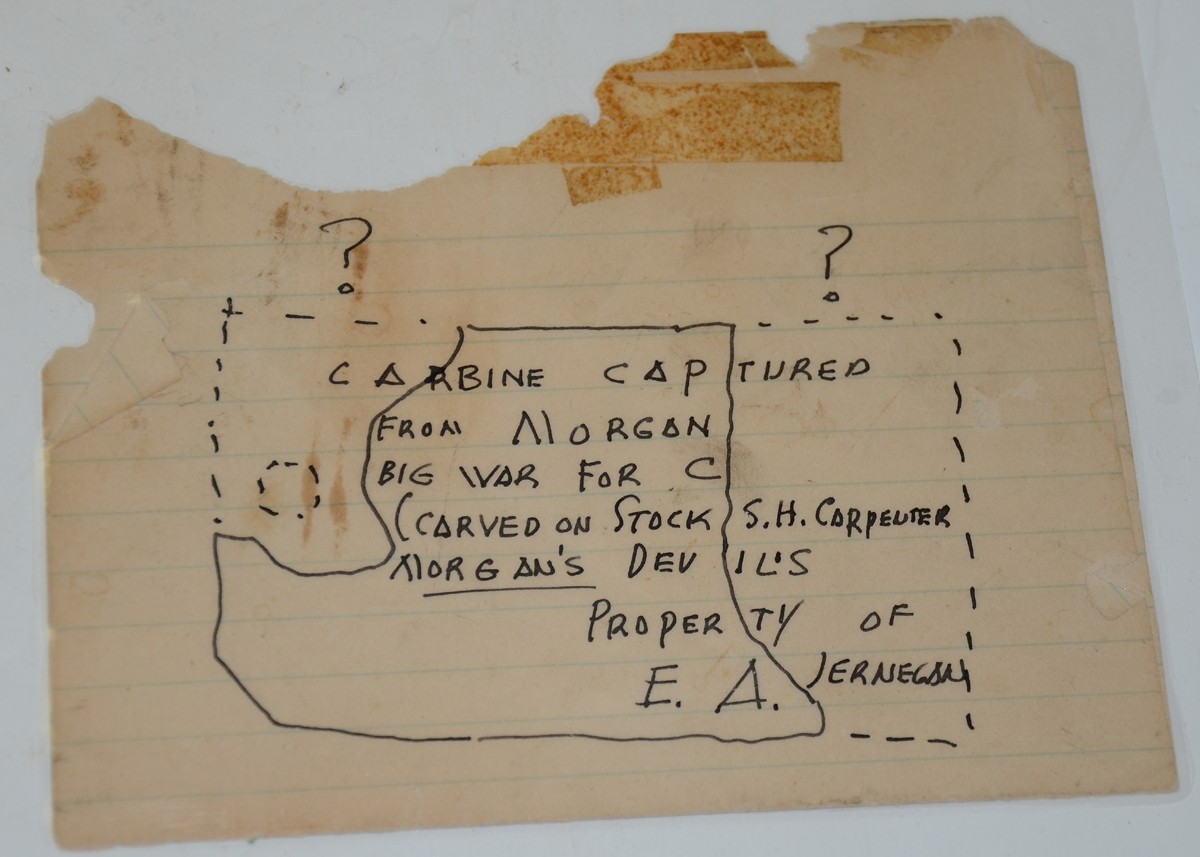 ? ?
CARBINE CAPTURED
FROM MORGAN
BIG WAR FOR C
(CARVED ON STOCK S.H. CARPENTER
MORGAN'S DEVIL'S
PROPERTY OF
E. A. JERNEGAN